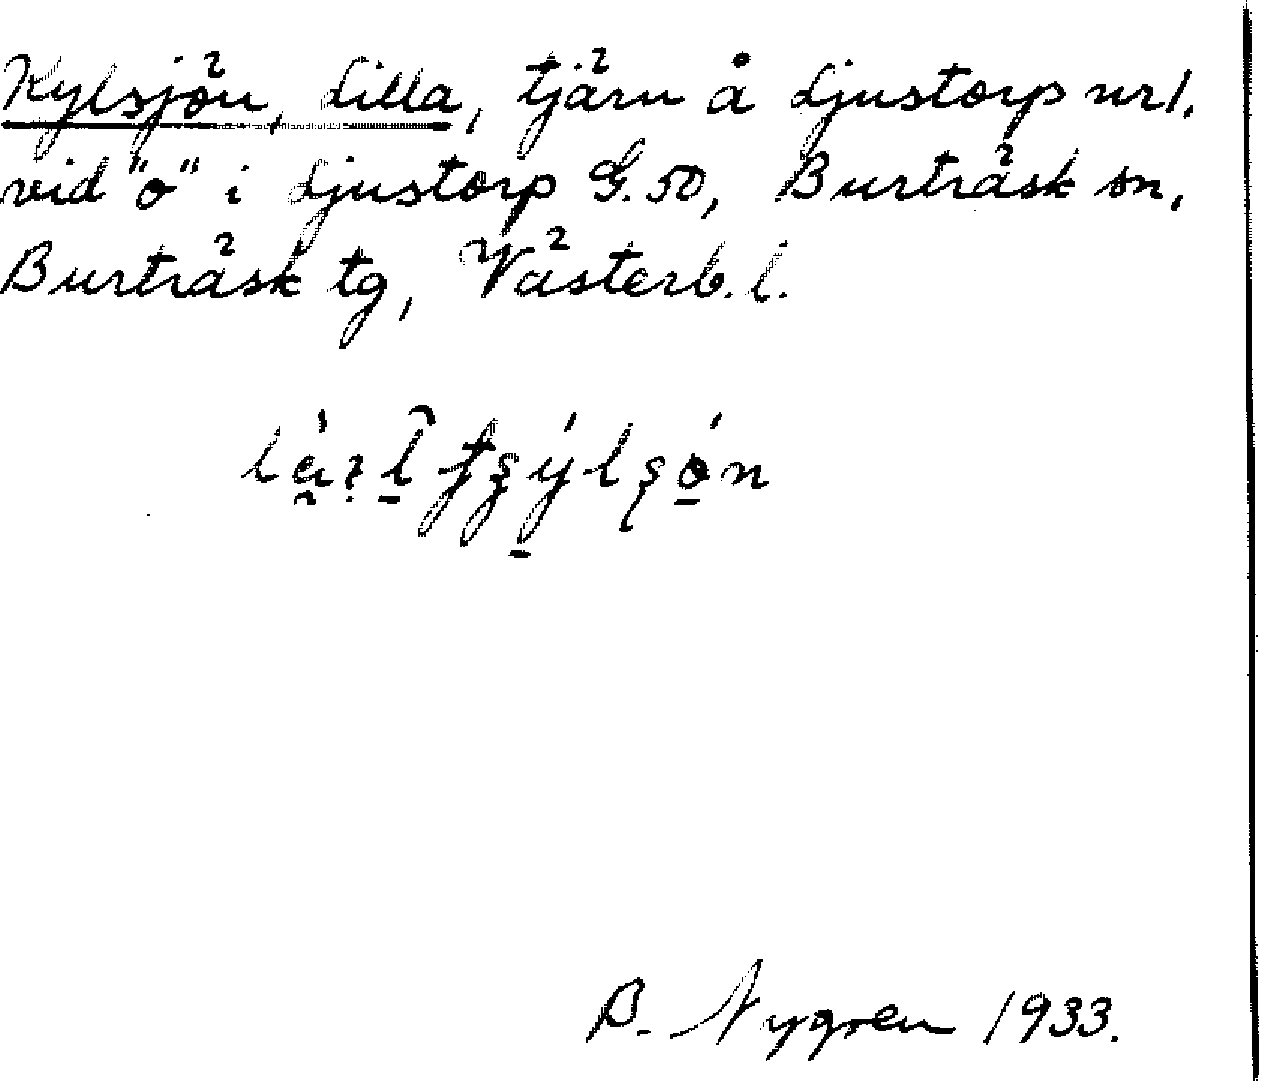 Kylsjön, Lilla, tjärn å Ljustorp nr 1.
vid "o" i Ljustorp G.50, Burträsk sn,
Burträsk tg, Västerb. l.
B. Nygren 1933.